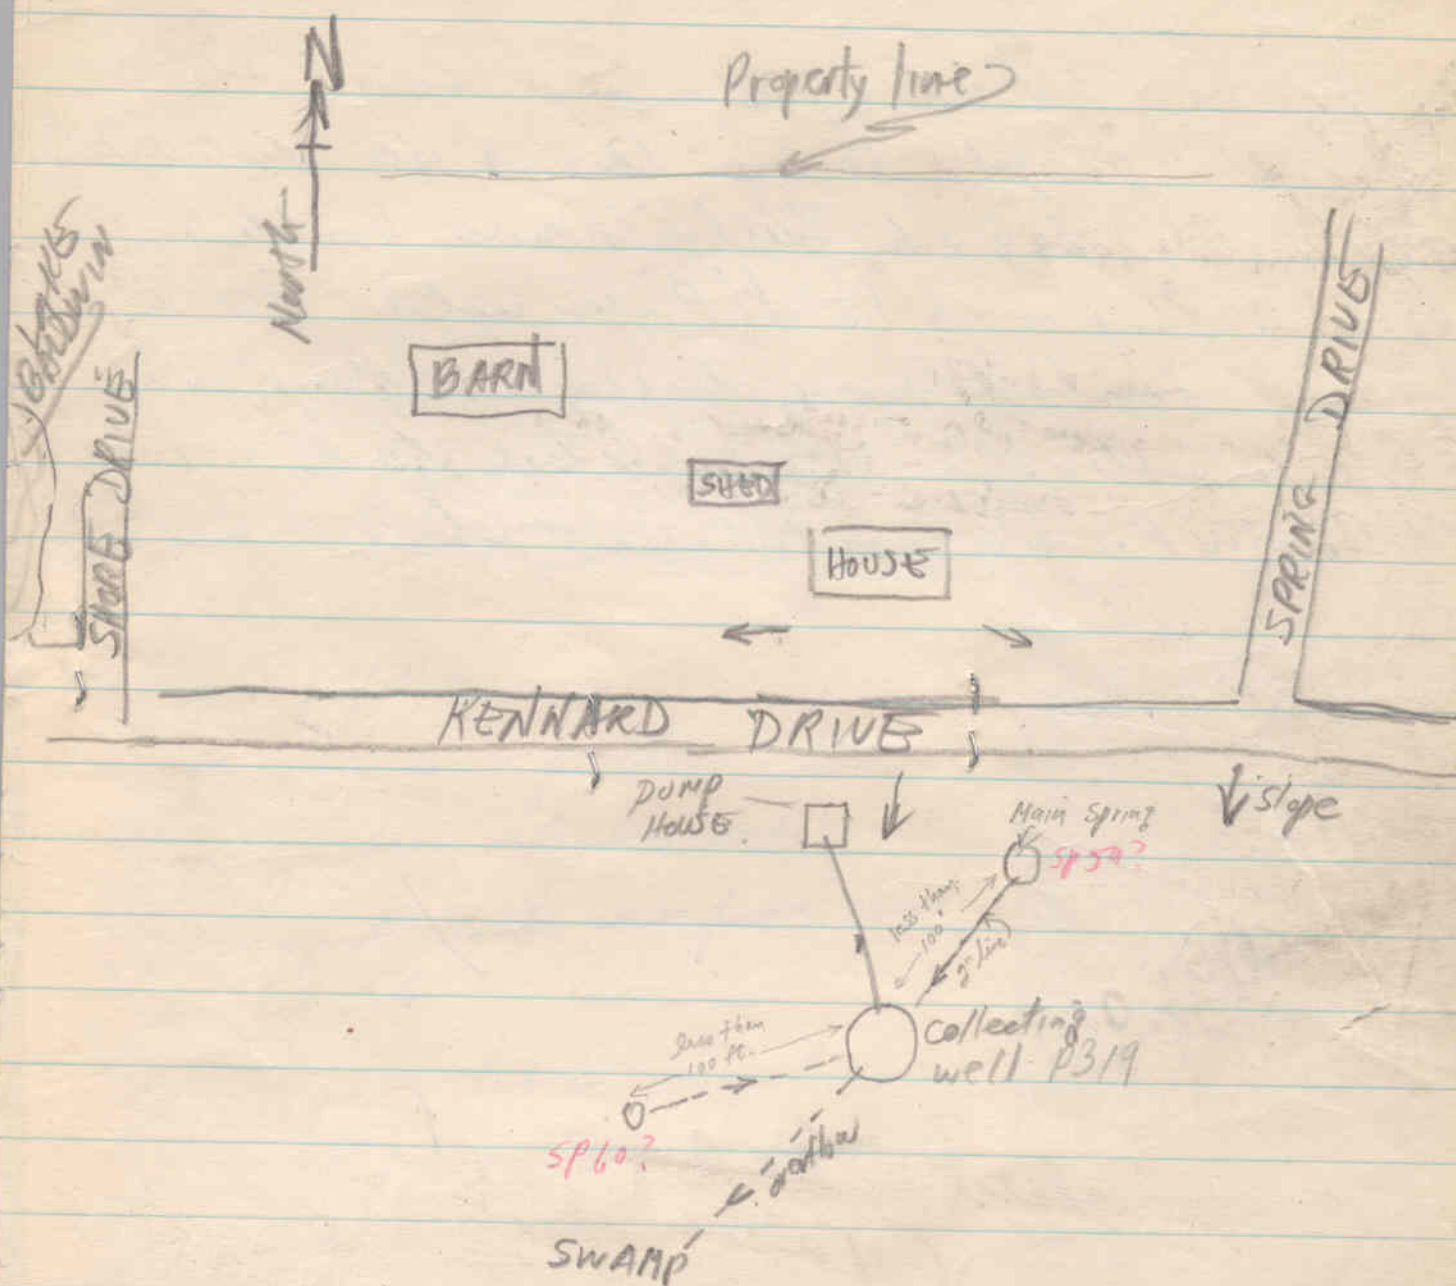 N
North
Property line
SHORE DRIVE
BARN
SHED
HOUSE
SPRING DRIVE
KENNARD DRIVE
PUMP
HOUSE
Main Spring
slope
less than
100'
2" line
collecting
well P319
less than
100 ft.
SP60?
overflow
SWAMP